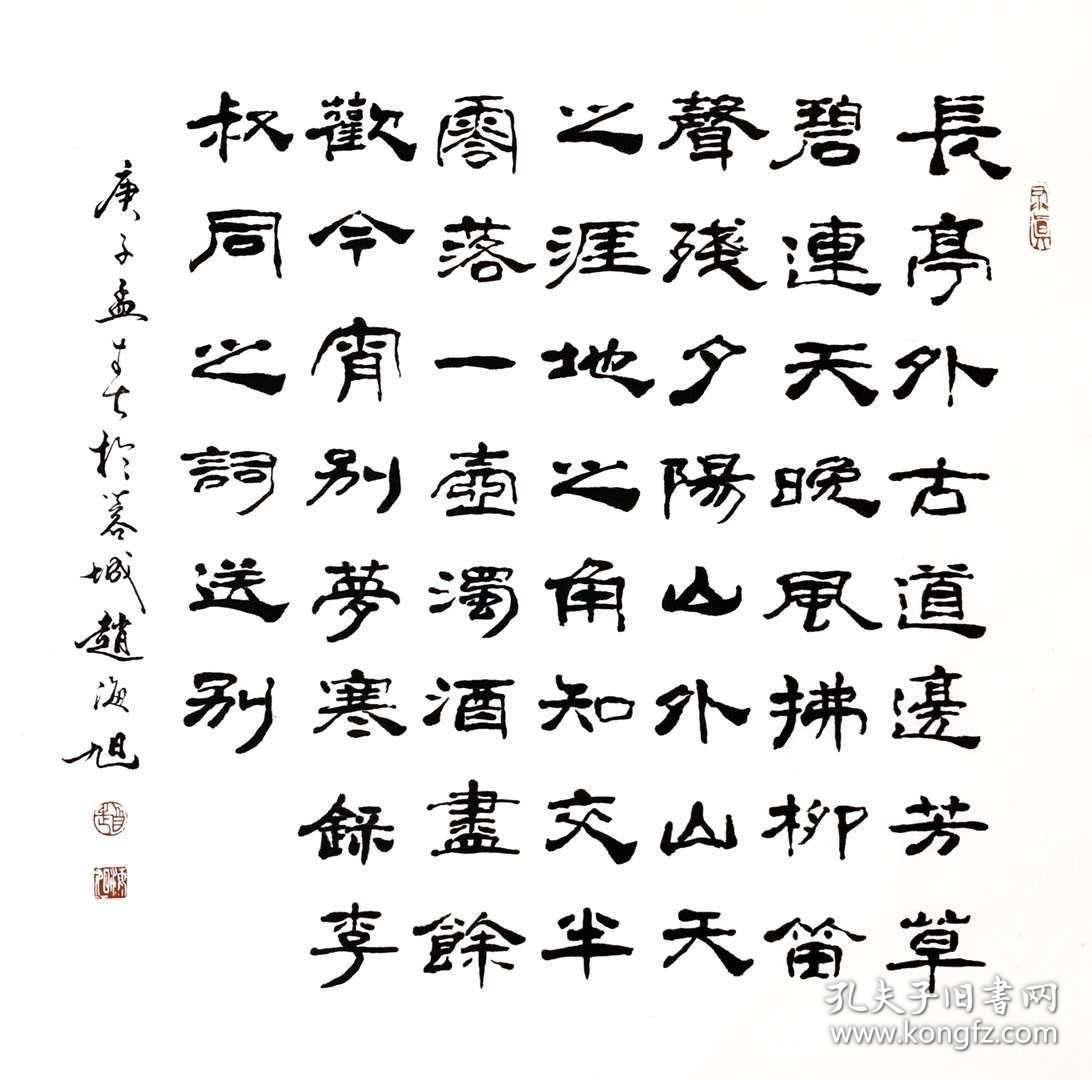 長亭外古道邊芳草
碧連天晚風拂柳笛
聲殘夕陽山外山天
之涯地之角知交半
零落一壺濁酒盡餘
歡今宵別夢寒錄李
叔同之詞送別
庚子孟春於蓉城趙海旭
孔夫子旧書网
www.kongfz.com